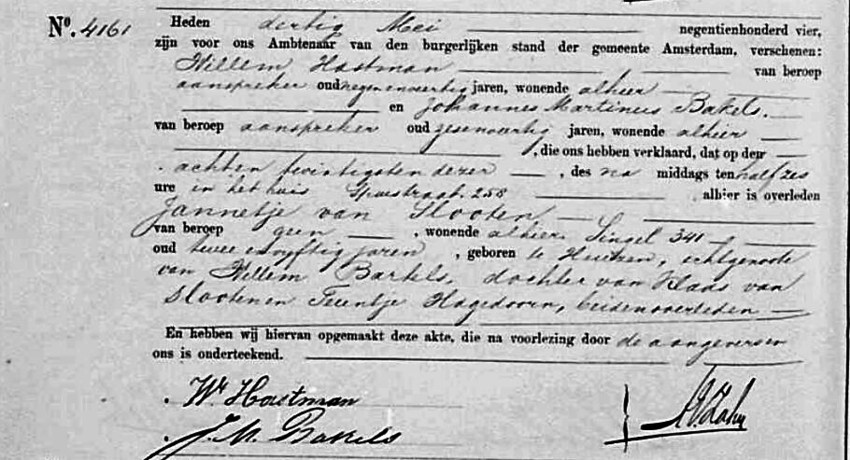 No. 4161 Heden dertig Mei negentienhonderd vier,
zijn voor ons Ambtenaar van den burgerlijken stand der gemeente Amsterdam, verschenen:
Willem Hostman van beroep
aanspreker oud negenenveertig jaren, wonende alhier
en Johannes Martinus Bakels.
van beroep aanspreker oud zesenveertig jaren, wonende alhier
, die ons hebben verklaard, dat op den
achten twintigsten dezer , des na middags ten half zes
ure in het huis Spuistraat 258 alhier is overleden
Jannetje van Slooten,
van beroep geen , wonende alhier Singel 341
oud twee en vyftig jaren , geboren te Huizen, echtgenoote
van Willem Barkels, dochter van Klaas van
Slooten en Teuntje Hagedoorn, beiden overleden
En hebben wij hiervan opgemaakt deze akte, die na voorlezing door de aangevers en
ons is onderteekend.
Wm Hostman
J. M. Bakels